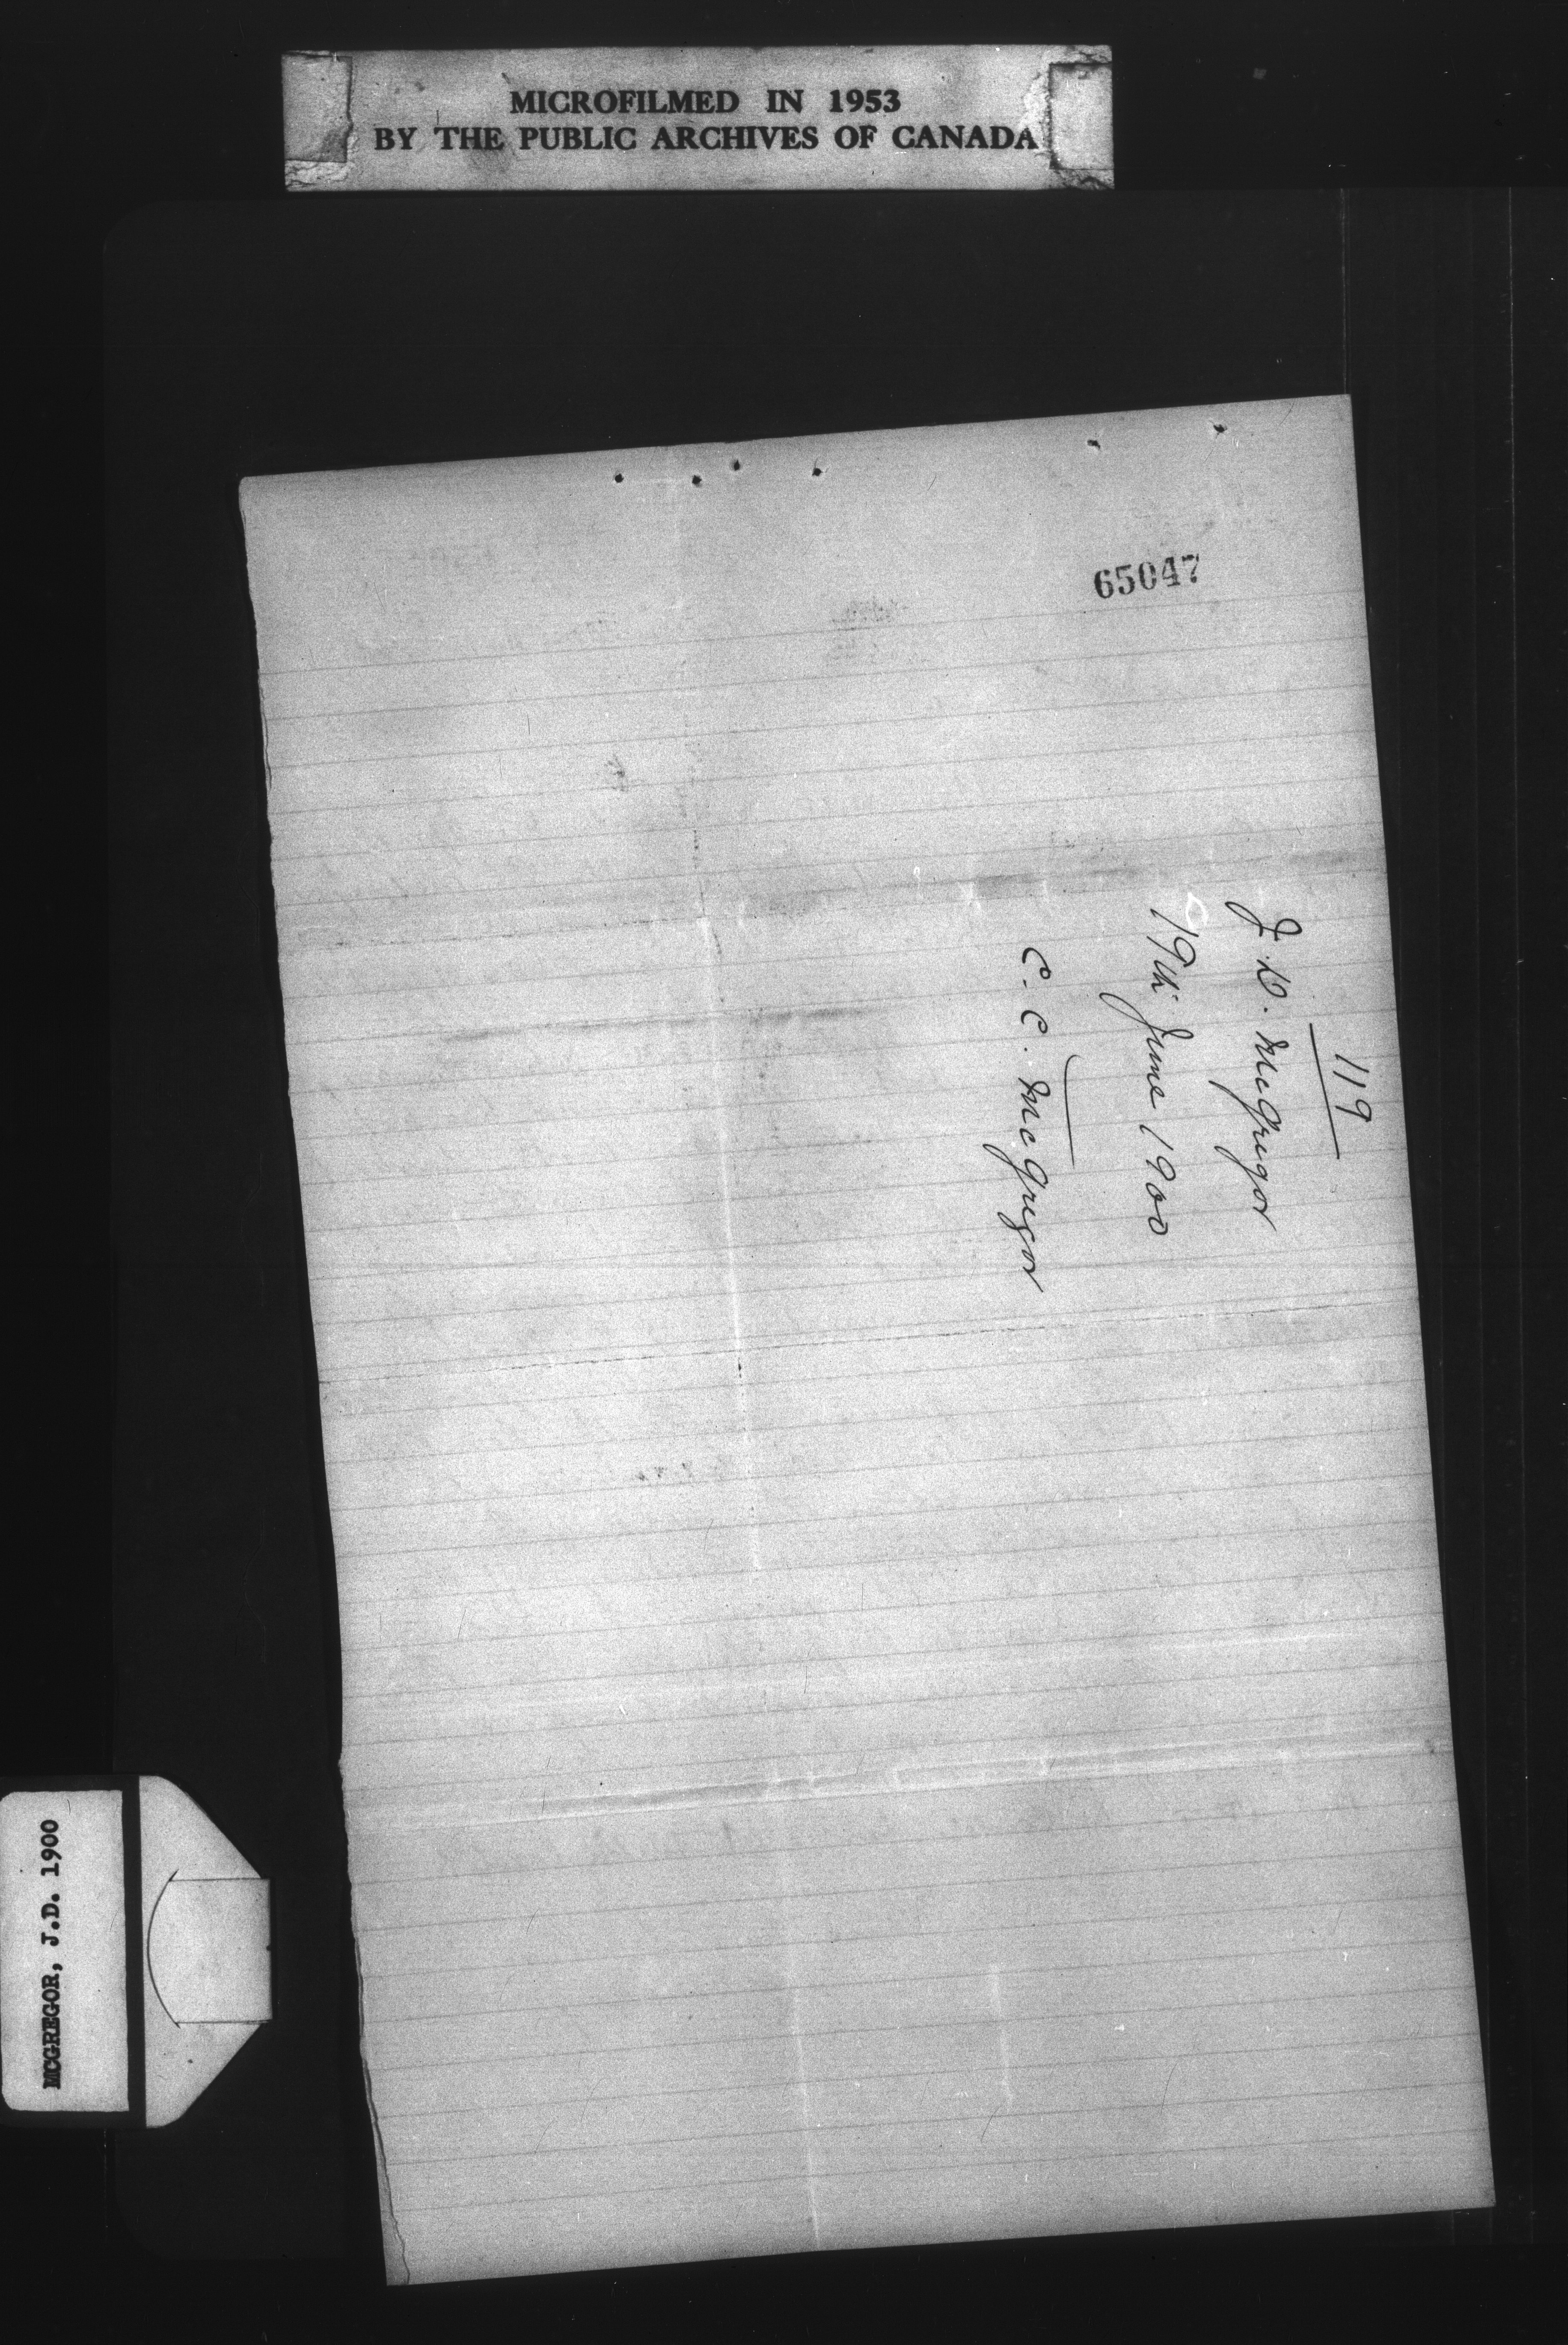 MICROFILMED IN 1953
BY THE PUBLIC ARCHIVES OF CANADA
65047
119
J. D. McGregor
19th June 1900
C. C. McGregor
MCGREGOR, J.D. 1900